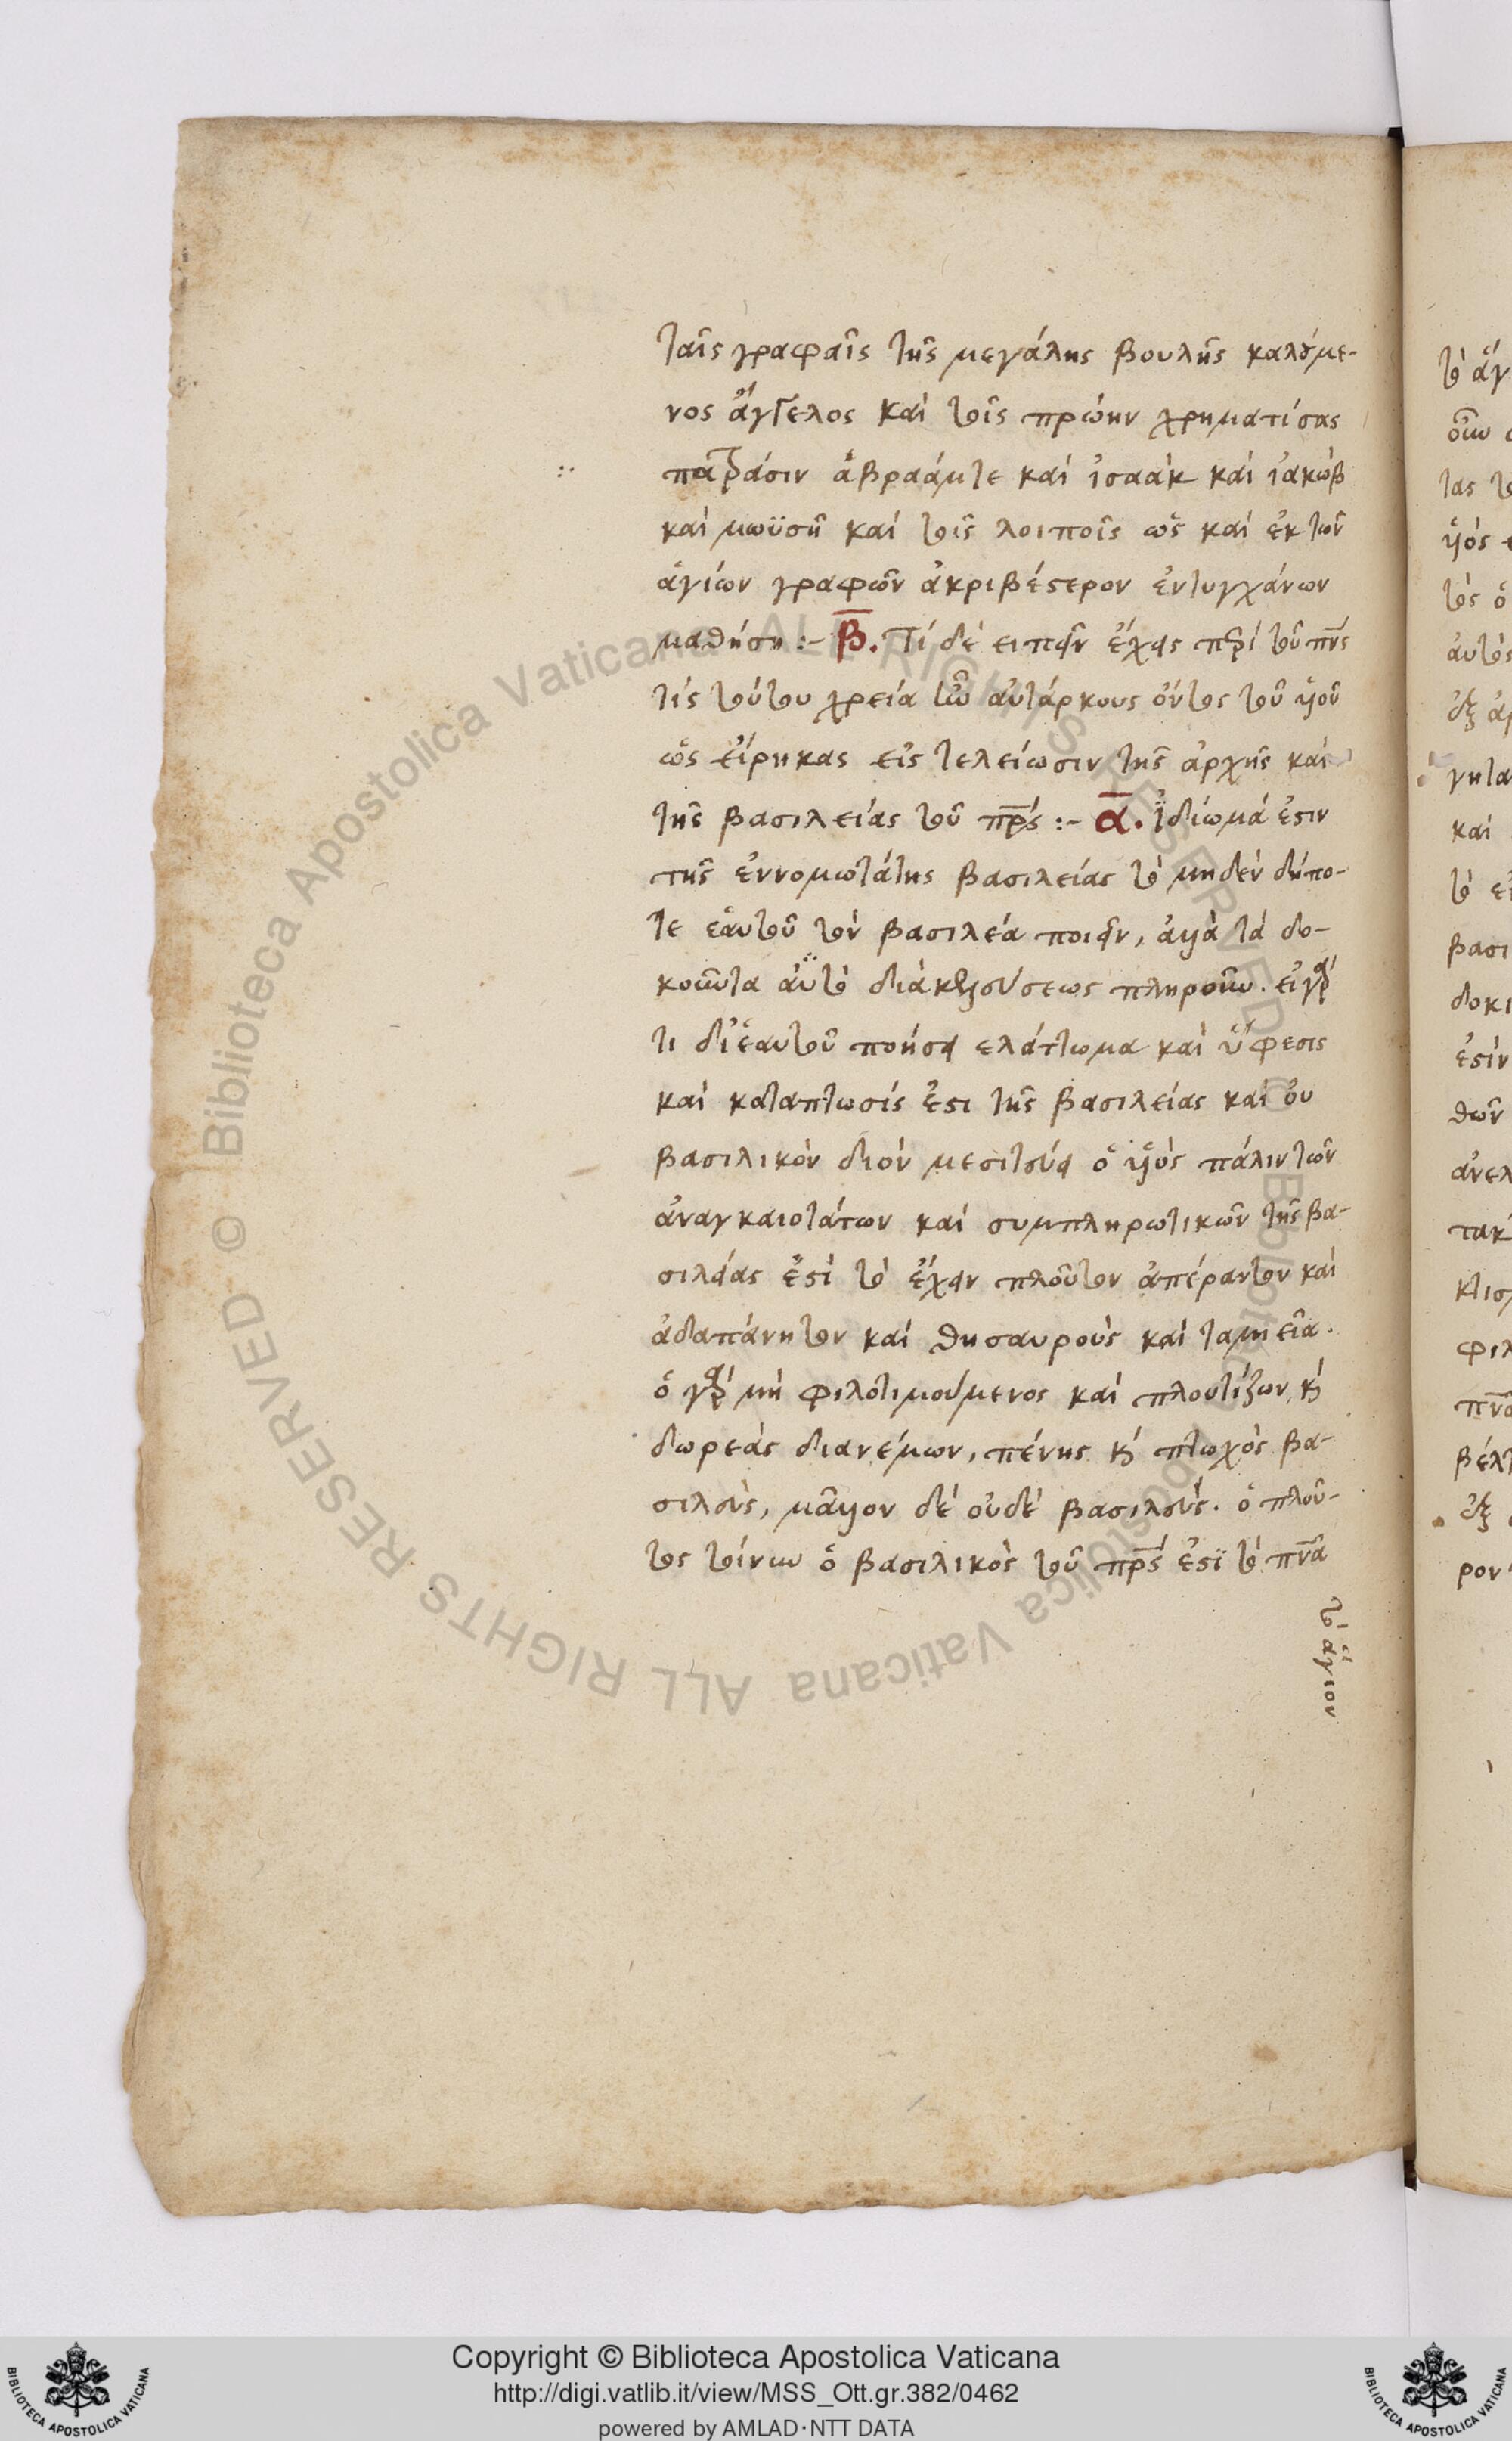 ταῖς γραφαῖς τῆς μεγάλης βουλῆς καλούμε-
νος ἄγγελος καὶ τοῖς πρώην χρηματίσας
πατράσιν ἀβραάμτε καὶ ἰσαὰκ καὶ ἰακὼβ
καὶ μωϋσῆ καὶ τοῖς λοιποῖς ὡς καὶ ἐκ τῶν
ἁγίων γραφῶν ἀκριβέστερον ἐντυγχάνων
μαθήση :- β̅. Τί δὲ ειπεῖν ἔχεις περὶ τοῦ πν̅ς
τίς τούτου χρεία τοῦ αὐτάρκους ὄντος τοῦ υἱοῦ
ὡς εἴρηκας εἰς τελείωσιν τῆς ἀρχῆς καὶ
τῆς βασιλείας τοῦ πρ̅ς :- α̅. Ἰδίωμά ἐστιν
τῆς ἐννομωτάτης βασιλείας τὸ μηδὲν δήπο-
τε ἑαυτοῦ τὸν βασιλέα ποιεῖν, ἀλλὰ τὰ δο-
κοῦντα αὐτῷ διὰ πληροῦν. εἰ γάρ
τι δι ἑαυτοῦ ποιήσει ελάττωμα καὶ ὕφεσις
καὶ κατάπτωσίς ἐστι τῆς βασιλείας καὶ οὐ
βασιλικὸν διὸν μεσιτεύει ὁ υἱὸς πάλιν τῶν
ἀναγκαιοτάτων καὶ συμπληρωτικῶν τῆς βα-
σιλείας ἐστὶ τὸ ἔχειν πλοῦτον ἀπέραντον καὶ
ἀδαπάνητον καὶ θησαυροὺς καὶ ταμιεῖα.
ὁ γὰρ μὴ φιλοτιμούμενος καὶ πλουτίζων κ̀
δωρεὰς διανέμων, πένης κ̀ πτωχὸς βα-
σιλεὺς, μᾶλλον δὲ οὐδὲ βασιλεύς. ὁ πλοῦ-
τος τοίνυν ὁ βασιλικὸς τοῦ πρ̅ς ἐστὶ τὸ πν̅α
τὸ ἅγιον
Copyright © Biblioteca Apostolica Vaticana
http://digi.vatlib.it/view/MSS_Ott.gr.382/0462
powered by AMLAD·NTT DATA